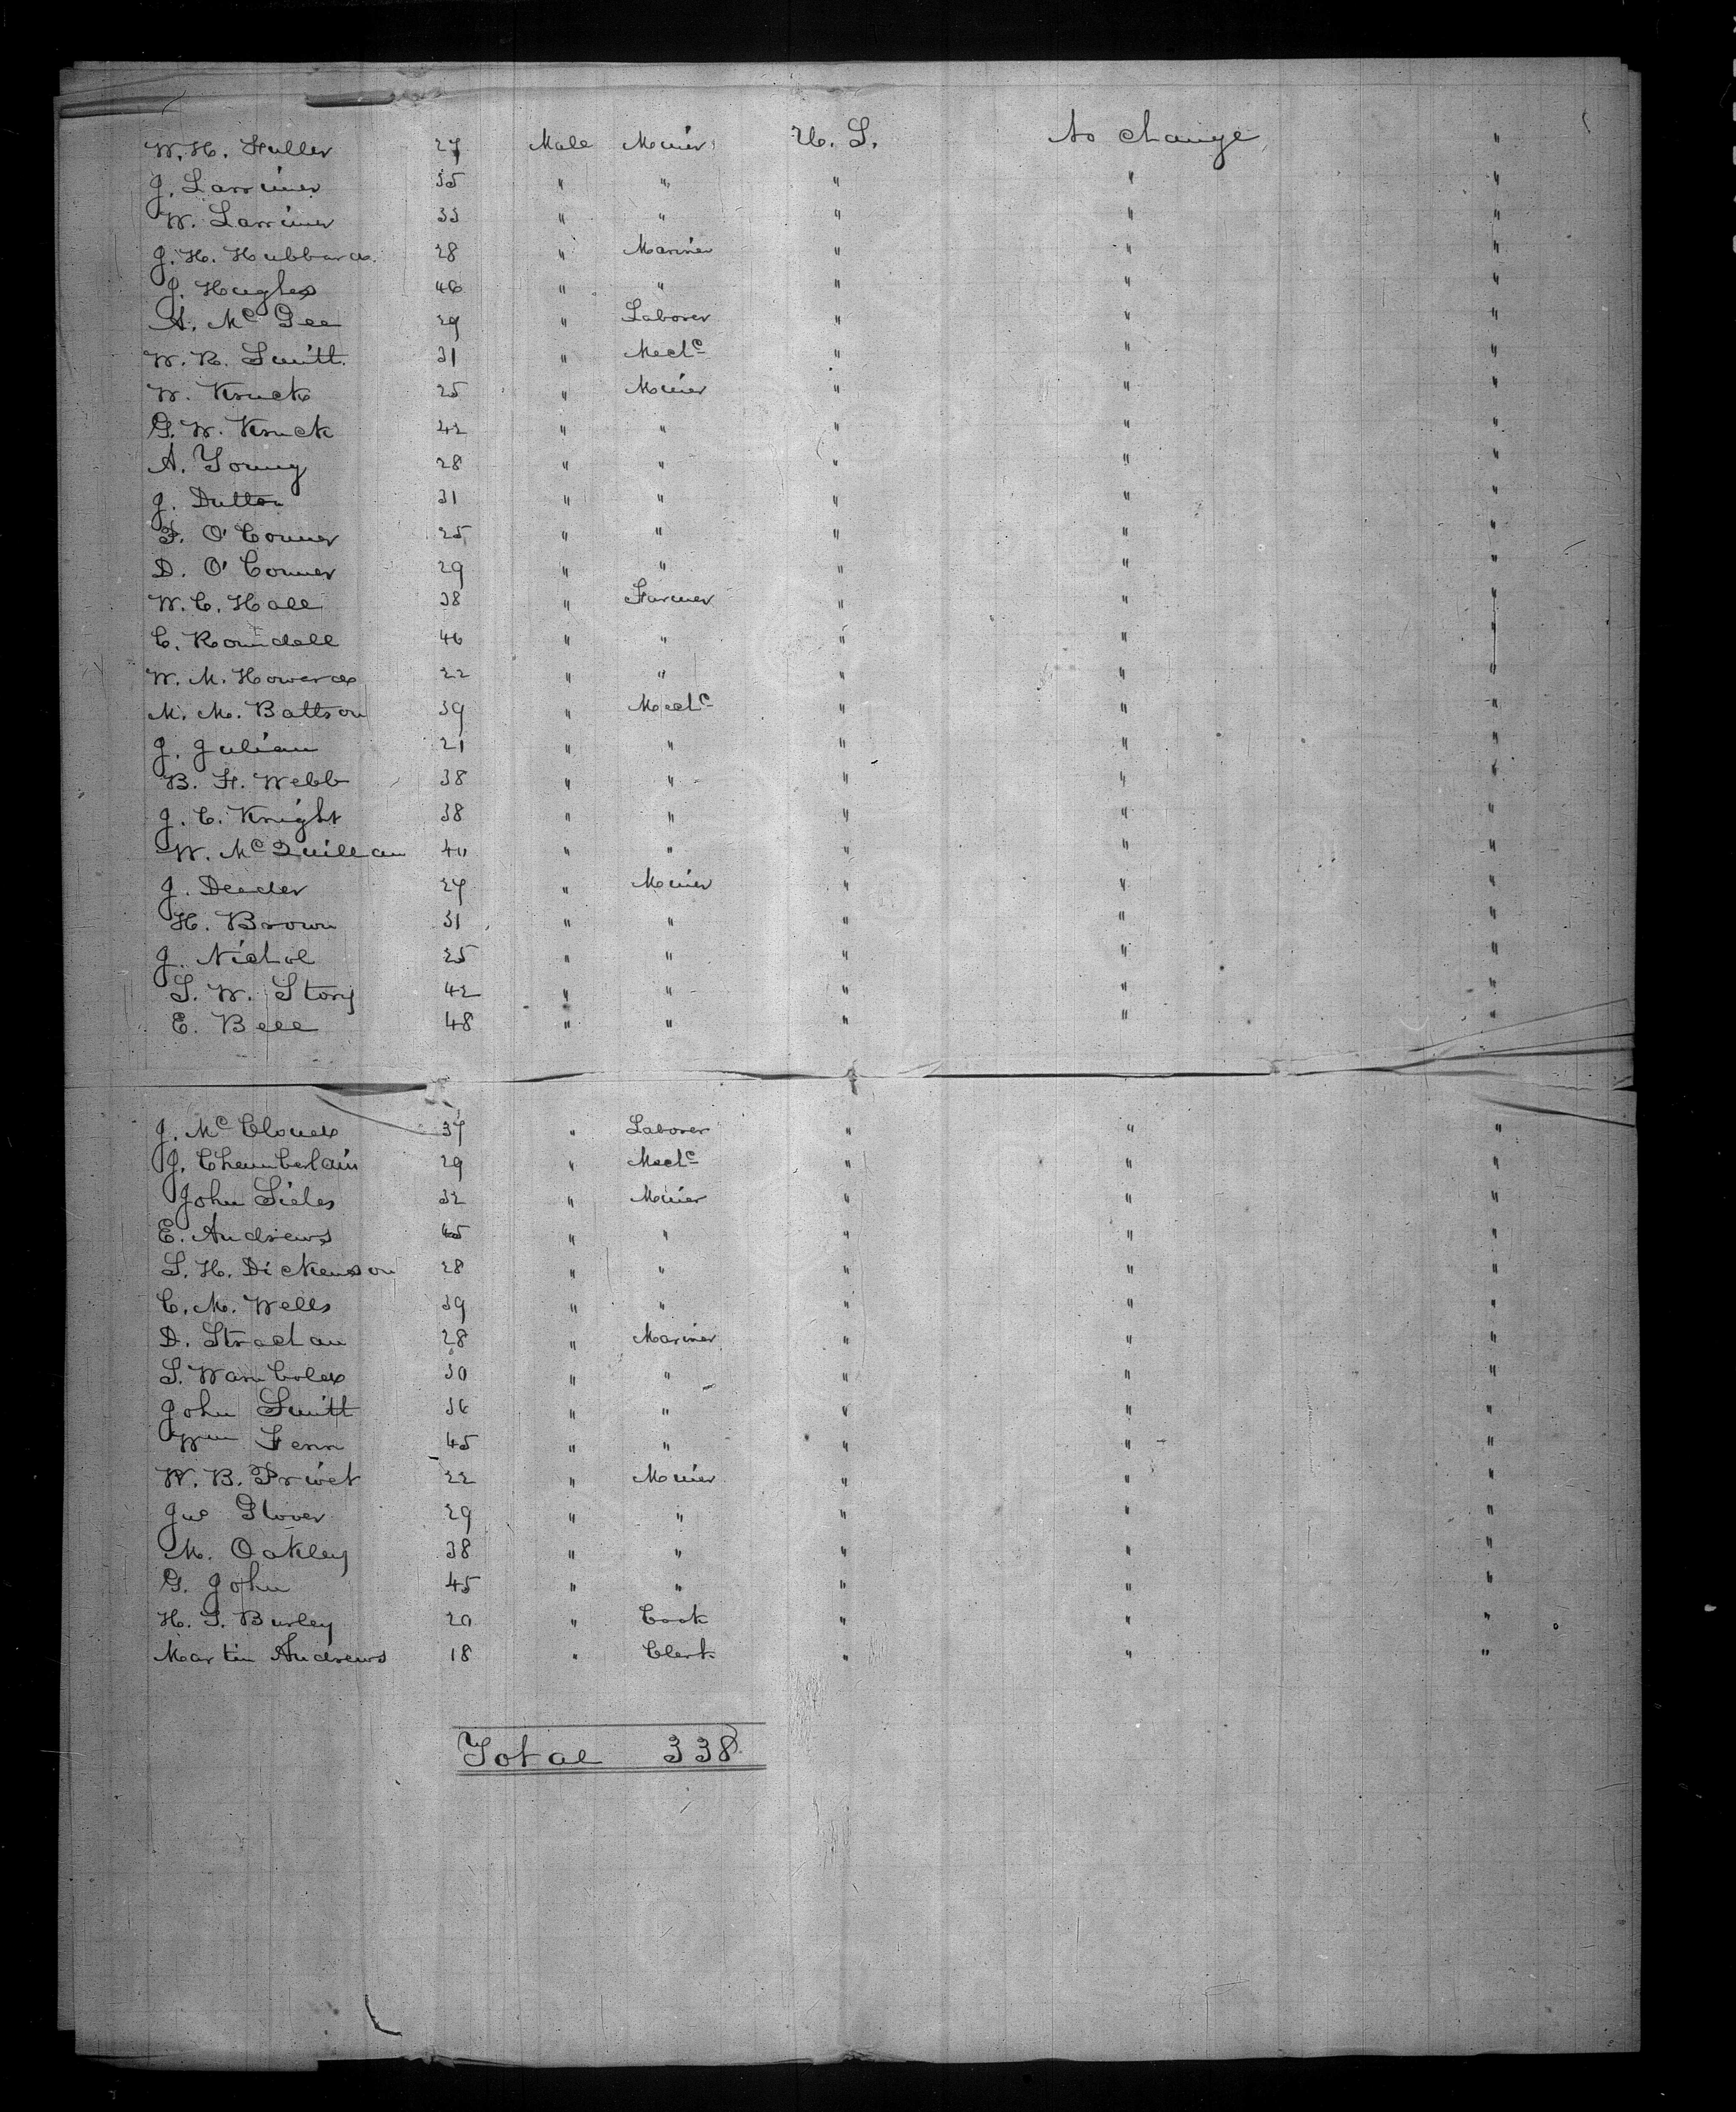 W. H. Fuller 27 Male Miner U. S. No change "
J. Larrimer 35 " " " " "
W. Larrimer 33 " " " " "
J. H. Hubbard 28 " Mariner " " "
J. Hughes 46 " " " " "
A. McGee 29 " Laborer " " "
W. R. Smith 31 " Mechc " " "
W. Kruck 25 " Miner " " "
G. W. Kruck 42 " " " " "
A. Young 28 " " " " "
J. Dutton 31 " " " " "
F. O'Conner 25 " " " " "
D. O'Conner 29 " " " " "
W. C. Hall 38 " Farmer " " "
C. Roundell 46 " " " " "
W. M. Howard 22 " " " " "
M. M. Battson 39 " Mechc " " "
J. Julian 21 " " " " "
B. F. Webb 38 " " " " "
J. C. Knight 38 " " " " "
W. McQuillan 40 " " " " "
J. Deader 27 " Miner " " "
H. Brown 31 " " " " "
J. Nichol 25 " " " " "
S. W. Story 42 " " " " "
E. Bell 48 " " " " "
J. McCloud 37 " Laborer " " "
J. Chamberlain 29 " Mechc " " "
John Sieles 32 " Miner " " "
E. Andrews 45 " " " " "
S. H. Dickenson 28 " " " " "
C. M. Wells 39 " " " " "
D. Strachan 28 " Mariner " " "
S. Wambold 30 " " " " "
John Smith 36 " " " " "
Wm Fenn 45 " " " " "
W. B. Privet 22 " Miner " " "
Glover 29 " " " " "
M. Oakley 38 " " " " "
G. John 45 " " " " "
H. S. Burley 20 " Cook " " "
Martin Andrews 18 " Clerk " " "
Total 338